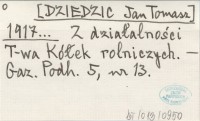 [DZIEDZIC Jan Tomasz]
1917... Z działalności
T-wa Kółek rolniczych. —
Gaz. Podh. 5, nr 13.